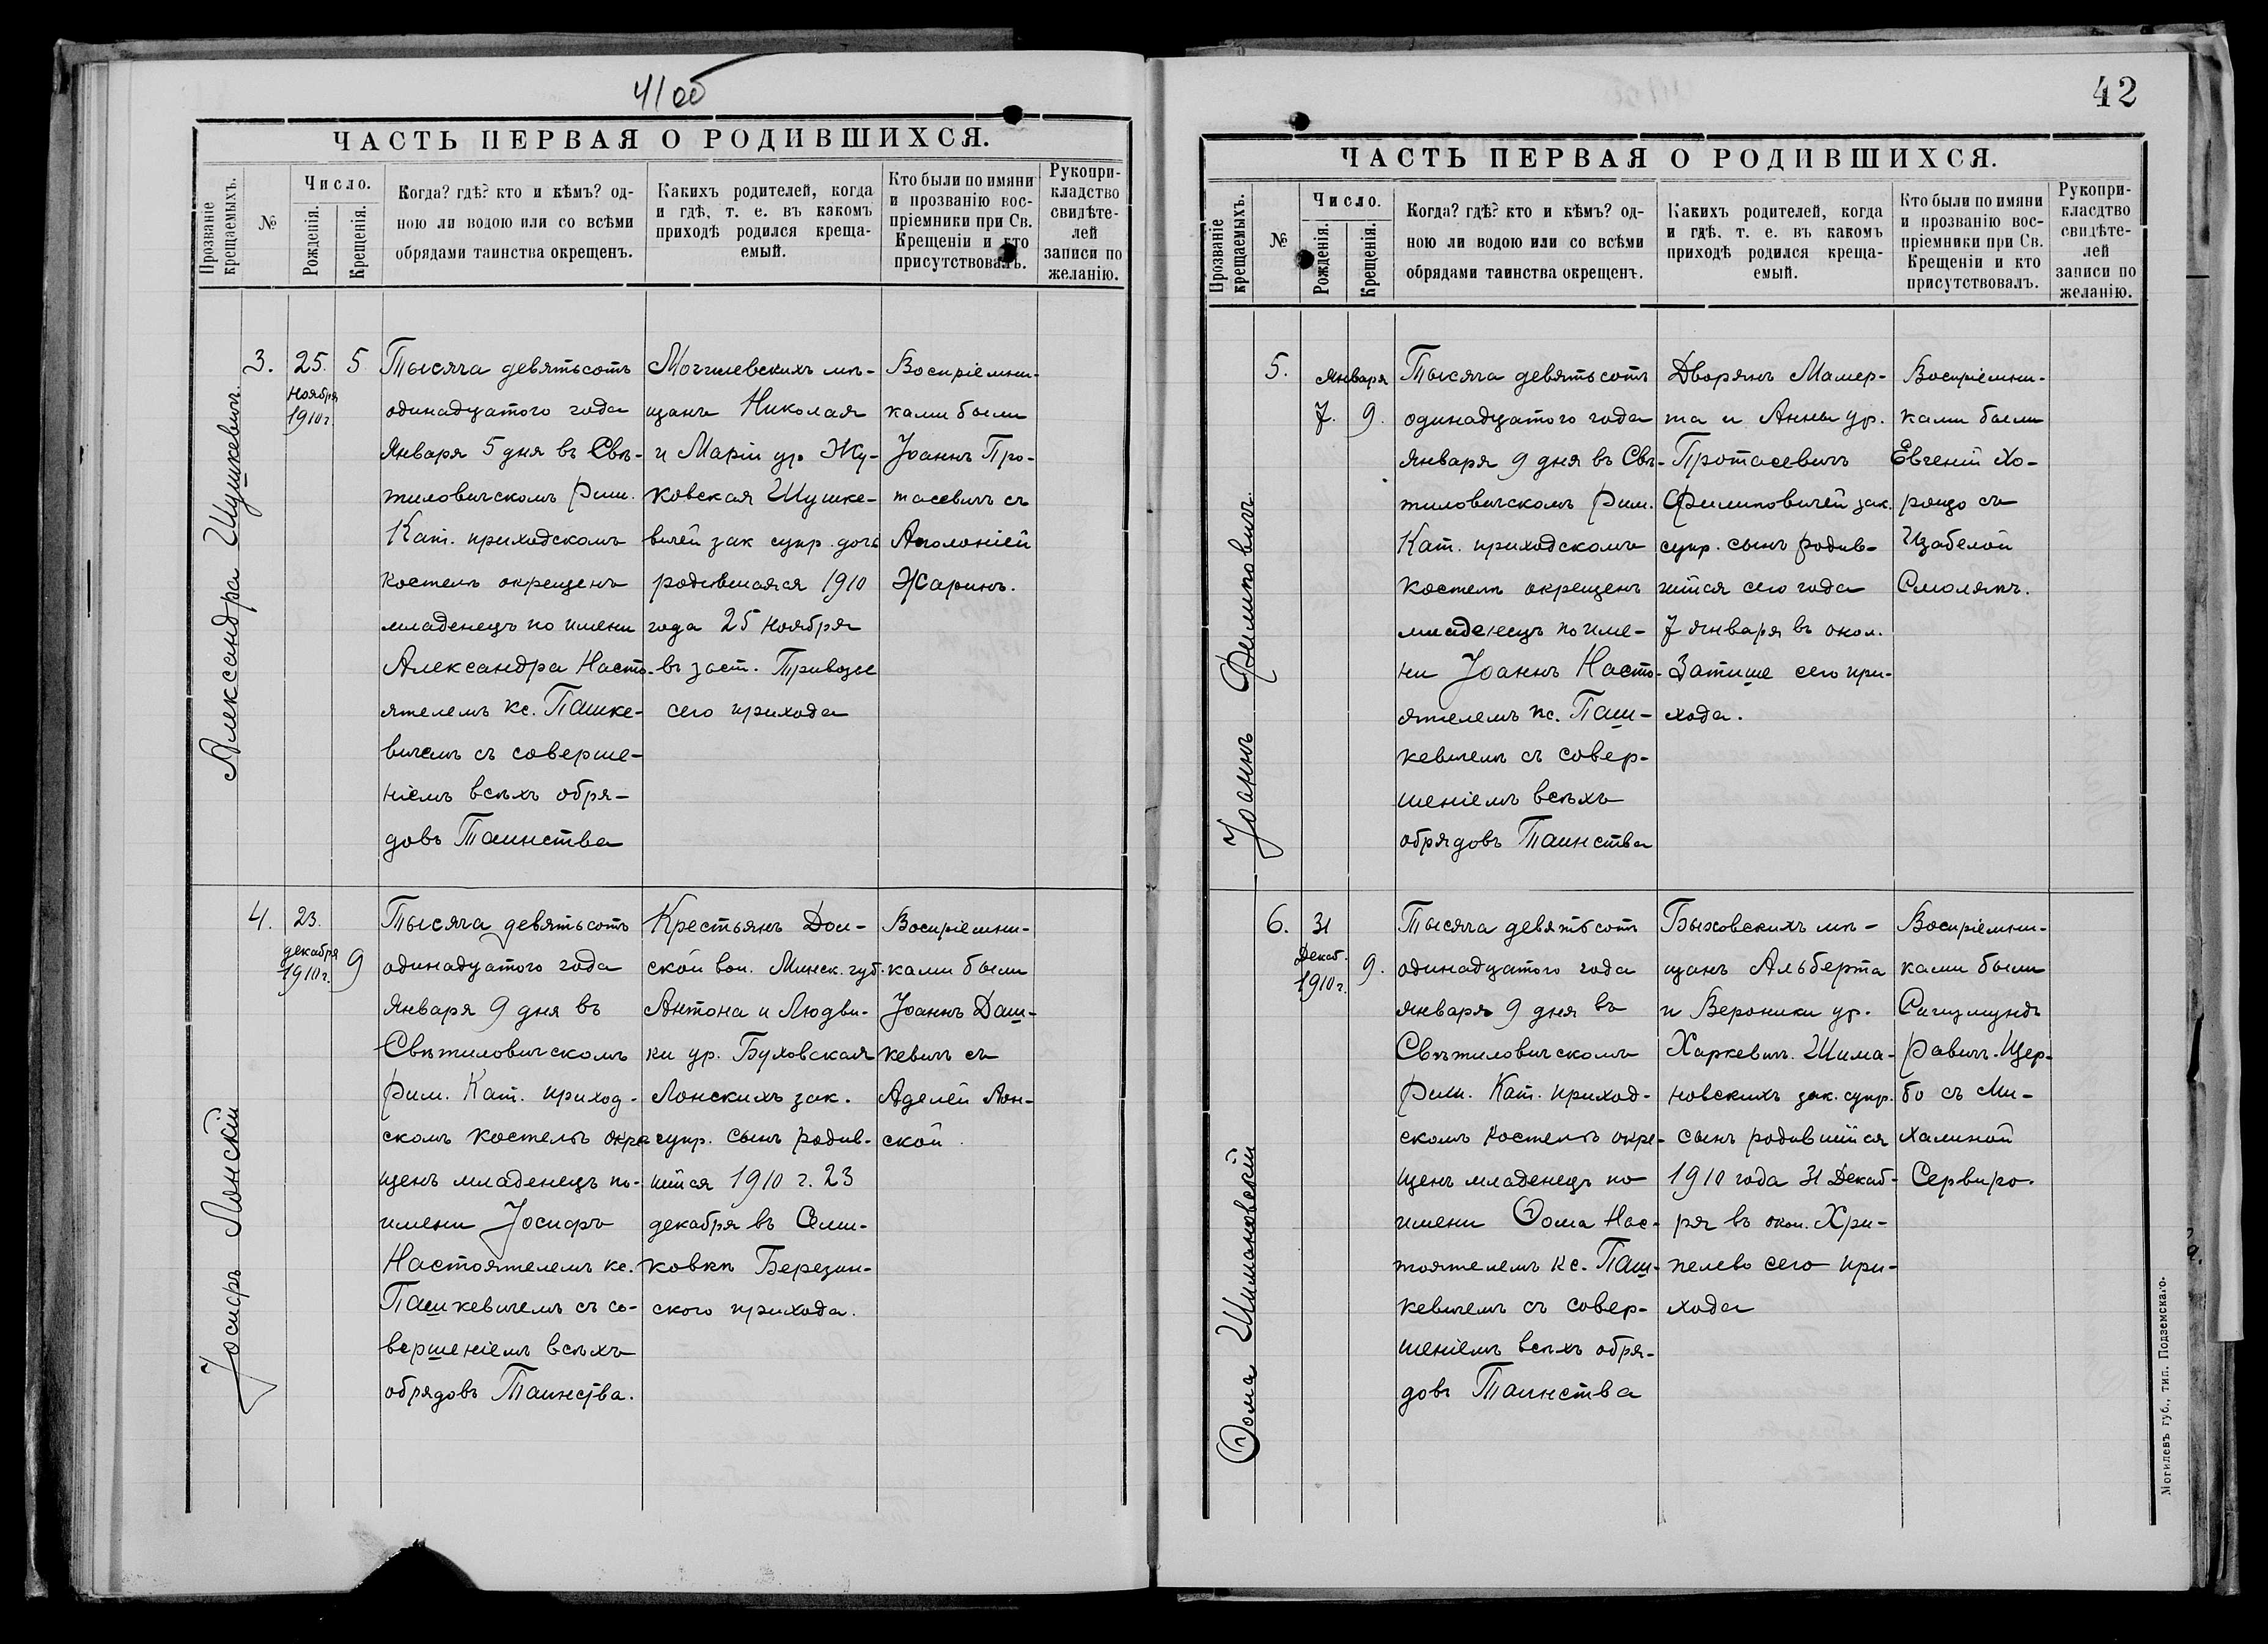 41об
ЧАСТЬ ПЕРВАЯ О РОДИВШИХСЯ.
Прозваніе крещаемыхъ.
№
Число.
Рожденія.
Крещенія.
Когда? гдѣ? кто и кѣмъ? од-
ною ли водою или со всѣми
обрядами таинства окрещенъ.
Какихъ родителей, когда
и гдѣ, т. е. въ какомъ
приходѣ родился креща-
емый.
Кто были по имяни
и прозванію вос-
пріемники при Св.
Крещеніи и кто
присутствовалъ.
Рукопри-
кладство
свидѣте-
лей
записи по
желанію.
Александра Шушкевичъ.
3.
25.
Ноября
1910 г.
5
Тысяча девятьсотъ
одинадцатого года
Января 5 дня въ Свѣ-
тиловичскомъ Рим.
Кат. приходскомъ
костелѣ окрещенъ
младенецъ по имени
Александра Насто-
ятелемъ кс. Пашке-
вичемъ съ соверше-
ніемъ всѣхъ обря-
довъ Таинства
Могилевскихъ мѣ-
щанъ Николая
и Маріи ур. Жу-
ковская Шушке-
вичей зак супр. дочь
родившаяся 1910
года 25 Ноября
въ заст. Приводы
сего прихода
Воспріемни-
ками были
Іоаннъ Про-
тасевичъ съ
Аполоніей
Жаринъ.
Іосифъ Лонскій
4.
23.
декабря
1910 г.
9
Тысяча девятьсотъ
одинадцатого года
Января 9 дня въ
Свѣтиловичскомъ
Рим. Кат. приход-
скомъ костелѣ окре
щенъ младенецъ по-
имени Іосифъ
Настоятелемъ кс.
Пашкевичемъ съ со-
вершеніемъ всѣхъ
обрядовъ Таинства.
Крестьянъ
ской вол. Минск. губ.
Антона и Людви-
ки ур. Буховская
Лонскихъ зак.
супр. сынъ родив-
шійся 1910 г. 23
декабря въ
ковкѣ Березин-
ского прихода.
Воспріемни-
ками были
Іоаннъ Даш-
кевичъ съ
Аделей Лон-
ской.
42
ЧАСТЬ ПЕРВАЯ О РОДИВШИХСЯ.
Прозваніе крещаемыхъ.
№
Число.
Рожденія.
Крещенія.
Когда? гдѣ? кто и кѣмъ? од-
ною ли водою или со всѣми
обрядами таинства окрещенъ.
Какихъ родителей, когда
и гдѣ, т. е. въ какомъ
приходѣ родился креща-
емый.
Кто были по имяни
и прозванію вос-
пріемники при Св.
Крещеніи и кто
присутствовалъ.
Рукопри-
класдтво
свидѣте-
лей
записи по
желанію.
Іоаннъ Филиповичъ.
5.
Января
7.
9.
Тысяча девятьсотъ
одинадцатого года
Января 9 дня въ Свѣ-
тиловичскомъ Рим.
Кат. приходскомъ
костелѣ окрещенъ
младенецъ по име-
ни Іоаннъ Насто-
ятелемъ кс. Паш-
кевичемъ съ совер-
шеніемъ всѣхъ
обрядовъ Таинства
Дворянъ Мамер-
та и Анны ур.
Протасевичъ
Филиповичей зак.
супр. сынъ родив-
шійся сего года
7 Января въ окол.
Затише сего при-
хода.
Воспріемни-
ками были
Евгеній Хо-
рощо съ
Изабелой
Смолякъ.
Фома Шимановскій
6.
31
Декаб.
1910 г.
9.
Тысяча девятьсотъ
одинадцатого года
Января 9 дня въ
Свѣтиловичскомъ
Рим. Кат. приход-
скомъ костелѣ окре-
щенъ младенецъ по
имени Фома Нас-
тоятелемъ кс. Паш-
кевичемъ съ совер-
шеніемъ всѣхъ обря-
довъ Таинства
Быховскихъ мѣ-
щанъ Альберта
и Вероники ур.
Харкевичъ. Шима-
новскихъ зак. супр.
сынъ родившійся
1910 года 31 Декаб-
ря въ окол. Хри-
пелево сего при-
хода
Воспріемни-
ками были
Сигизмундъ
Равичъ-Щер-
бо съ Ми-
халиной
Сервиро.
Могилевъ губ., тип. Подземскаго.